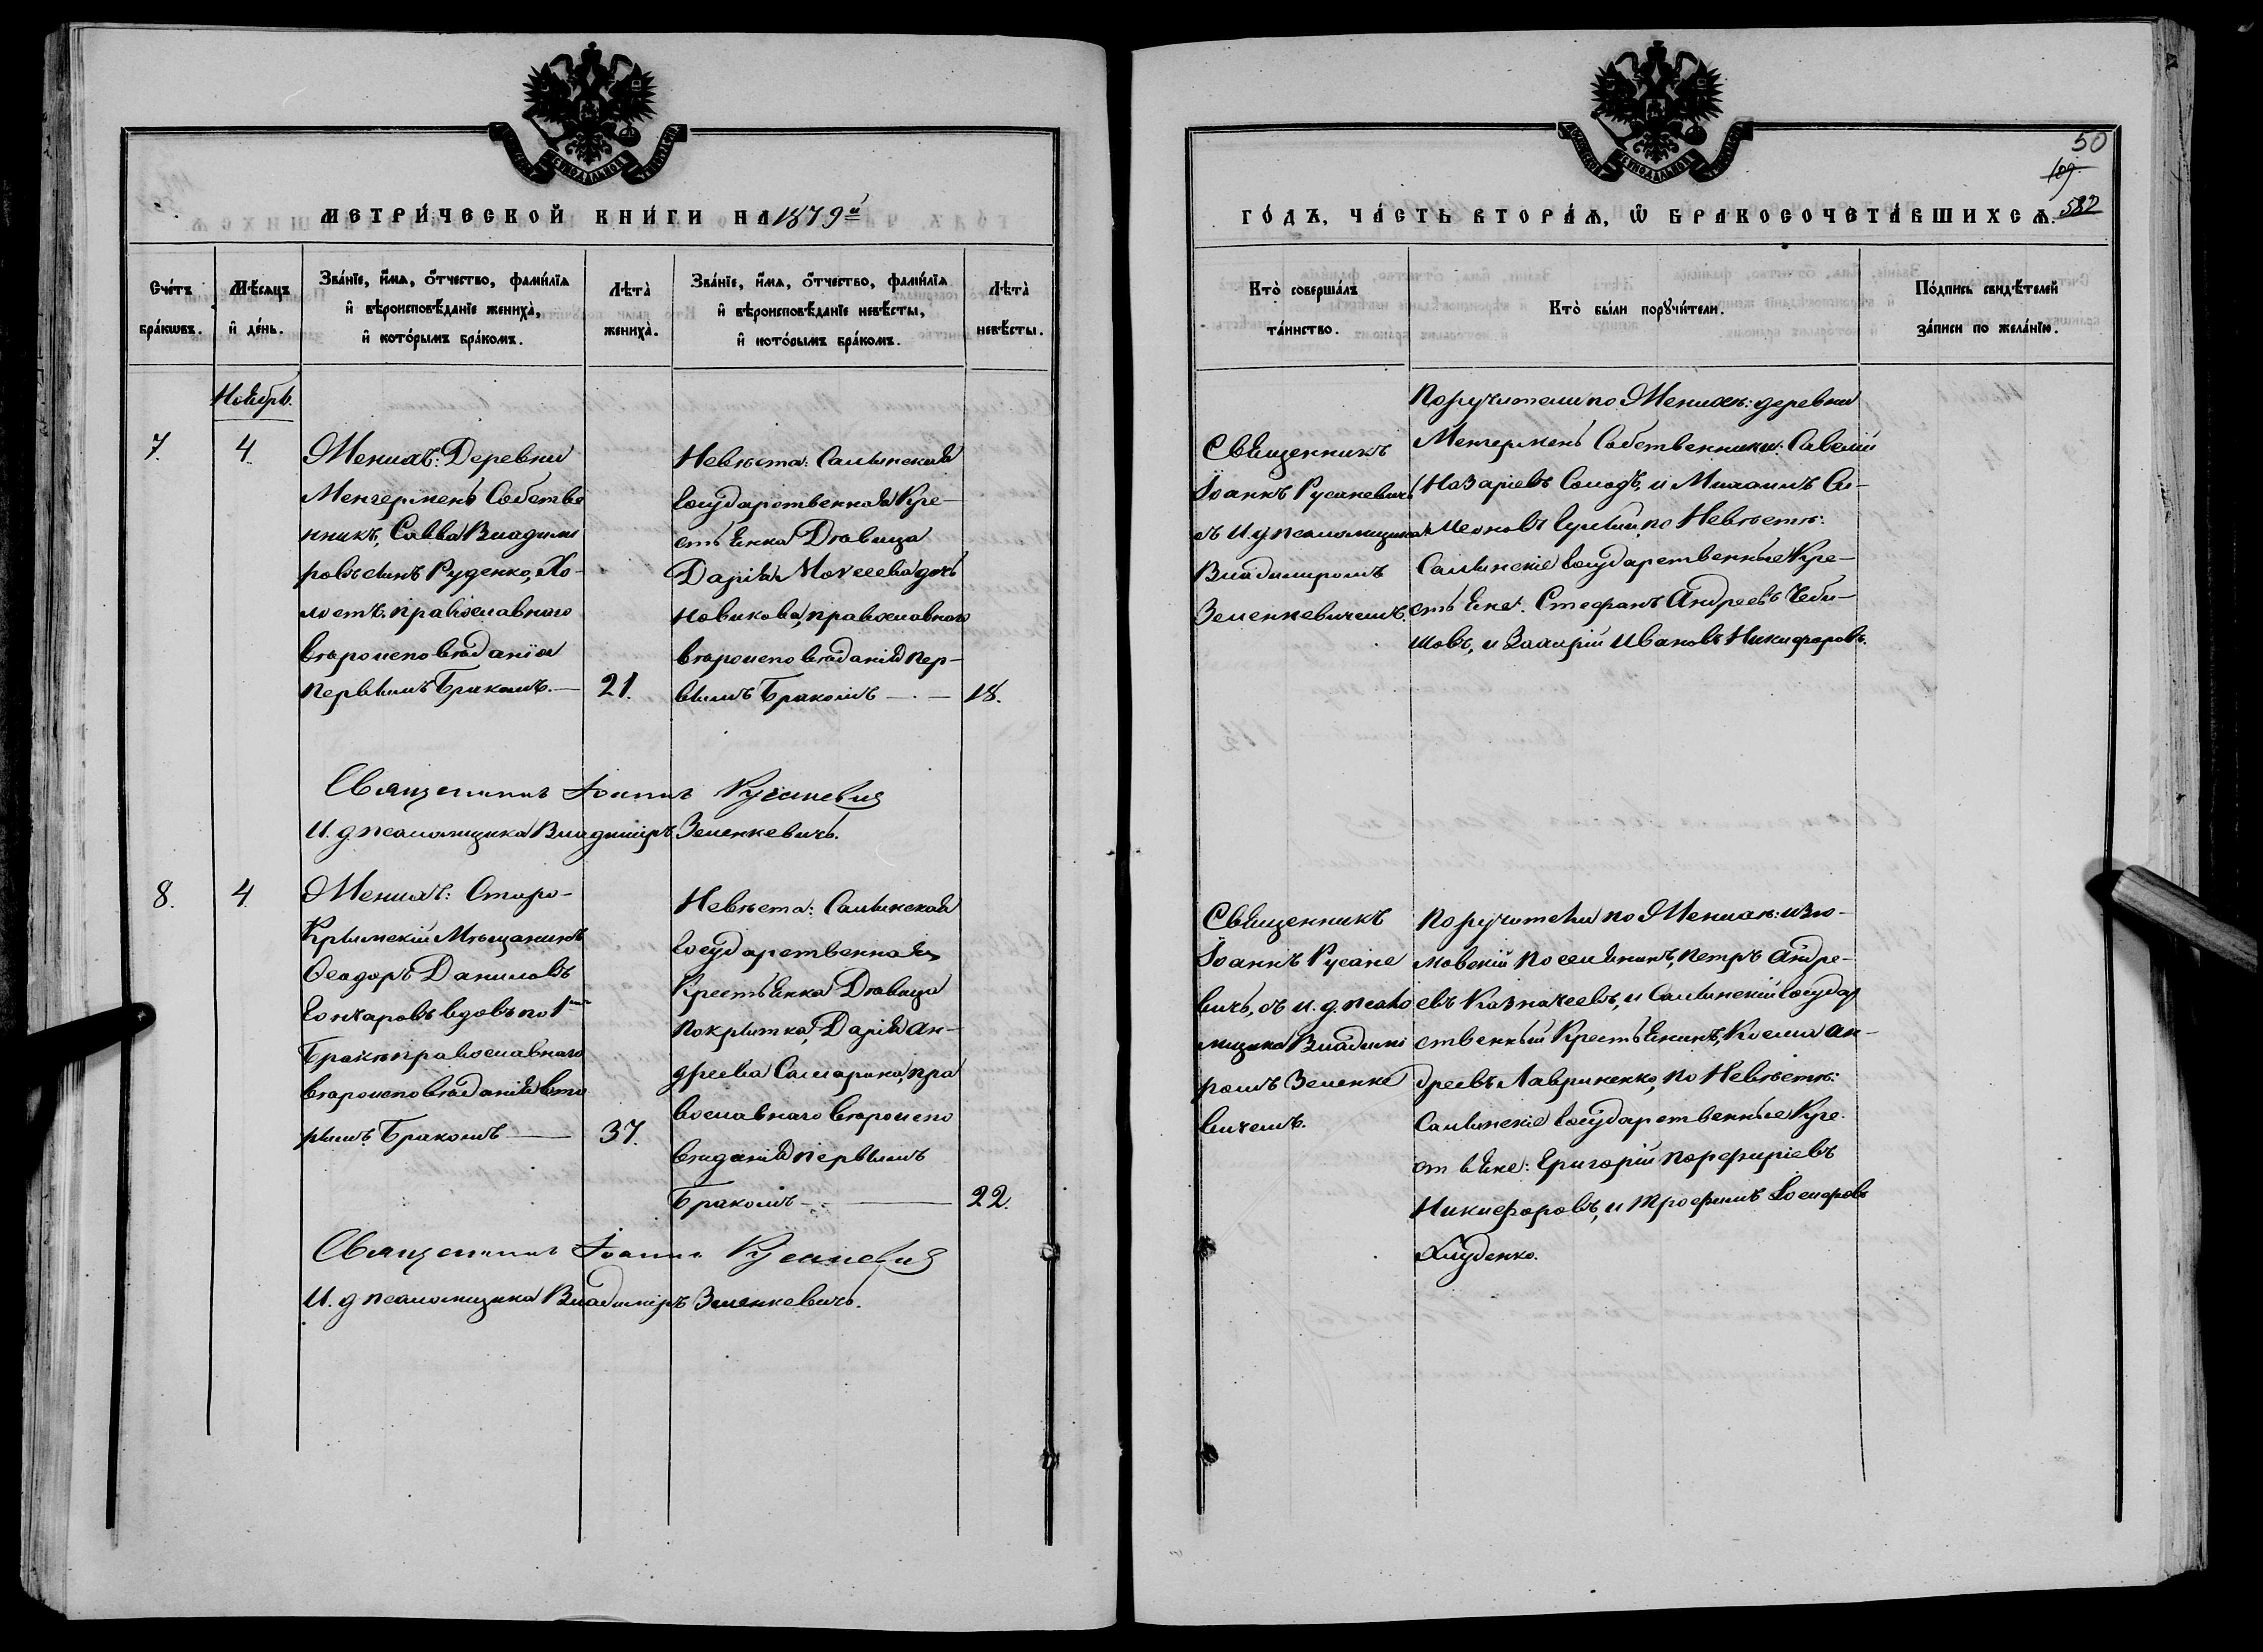 МЕТРИ́ЧЕСКОЙ КНИ́ГИ НА 1879й
Сче́тъ бра́кωвъ.
Мѣ́сяцъ и҆ де́нь.
Зва́нїе, и҆́мѧ, ѻ҆́тчество, фами́лїѧ
и҆ вѣроисповѣ́данїе жениха̀,
и҆ кото́рымъ бра́комъ.
Лѣта̀ жениха̀.
Зва́нїе, и҆́мѧ, ѻ҆́тчество, фами́лїѧ
и҆ вѣроисповѣ́данїе невѣ́сты,
и҆ кото́рымъ бра́комъ.
Лѣта̀ невѣ́сты.
Ноябрь.
7.
4.
Женихъ: Деревни
Менгерменъ Собстве
нникъ, Савва Владими
ровъ сынъ Руденко, Хо-
лостъ. православнаго
вѣроисповѣданія
первымъ Бракомъ. —
21.
Невѣста: Салынская
Государственная Кре-
стьянка Дѣвица
Дарія Моисеева дочь
Новикова, православнаго
вѣроисповѣданія пер-
вымъ Бракомъ — . —
18.
Священникъ Іоаннъ Русаневичъ
И. д псаломщика Владиміръ Зеленкевичъ.
8.
4.
Женихъ: Старо-
Крымскій Мѣщанинъ
Ѳеодоръ Даниловъ
Гончаровъ вдовъ по 1мъ
Бракѣ православнаго
вѣроисповѣданія вто
рымъ Бракомъ —
37.
Невѣста: Салынская
Государственная
Крестьянка Дѣвица
покрытка, Дарія Ан-
дреева Самарина, пра
вославнаго вѣроиспо
вѣданія первымъ
Бракомъ — . —
22.
Священникъ Іоаннъ Русаневичъ
И. д псаломщика Владиміръ Зеленкевичъ.
50
109
582
ГО́ДЪ, ЧА́СТЬ ВТОРА́Ѧ, Ѡ҆ БРАКОСОЧЕТА́ВШИХСѦ.
Кто̀ соверша́лъ
та́инство.
Кто̀ бы́ли порꙋчи́тели.
По́дпись свидѣ́телей
за́писи по жела́нїю.
Священникъ
Іоаннъ Русаневичъ
съ И д псаломщика
Владимиромъ
Зеленкевичемъ.
Поручители по Женихѣ: деревни
Менгерменъ Собственники: Савелій
Назаріевъ Солодъ, и Михаилъ Си-
меоновъ по Невѣстѣ:
Салынскіе Государственные Кре-
стьяне: Стефанъ Андреевъ Чеби-
шовъ, и Ивановъ Никифоровъ.
Священникъ
Іоаннъ Русане
вичъ, съ и. д. псало
мщика Владими
ромъ Зеленке
вичемъ.
Поручители по Женихѣ: Изю-
мовскій поселянинъ, Петръ Андре-
евъ Казначеевъ, и Салынскій Государ
ственный Крестьянинъ, Косма Ан-
дреевъ Лавриненко, по Невѣстѣ:
Салынскіе Государственные Кре-
стьяне: Григорій Порфиріевъ
Никифоровъ, и Трофимъ
Хлуденко.